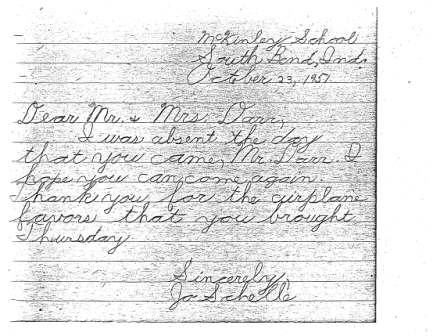 McKinley School
South Bend, Ind.
October 23, 1951
Dear Mr. & Mrs. Darr,
I was absent the day
that you came, Mr. Darr. I
hope you can come again.
Thank you for the airplane
favors that you brought
Thursday.
Sincerely,
Jo Schelle